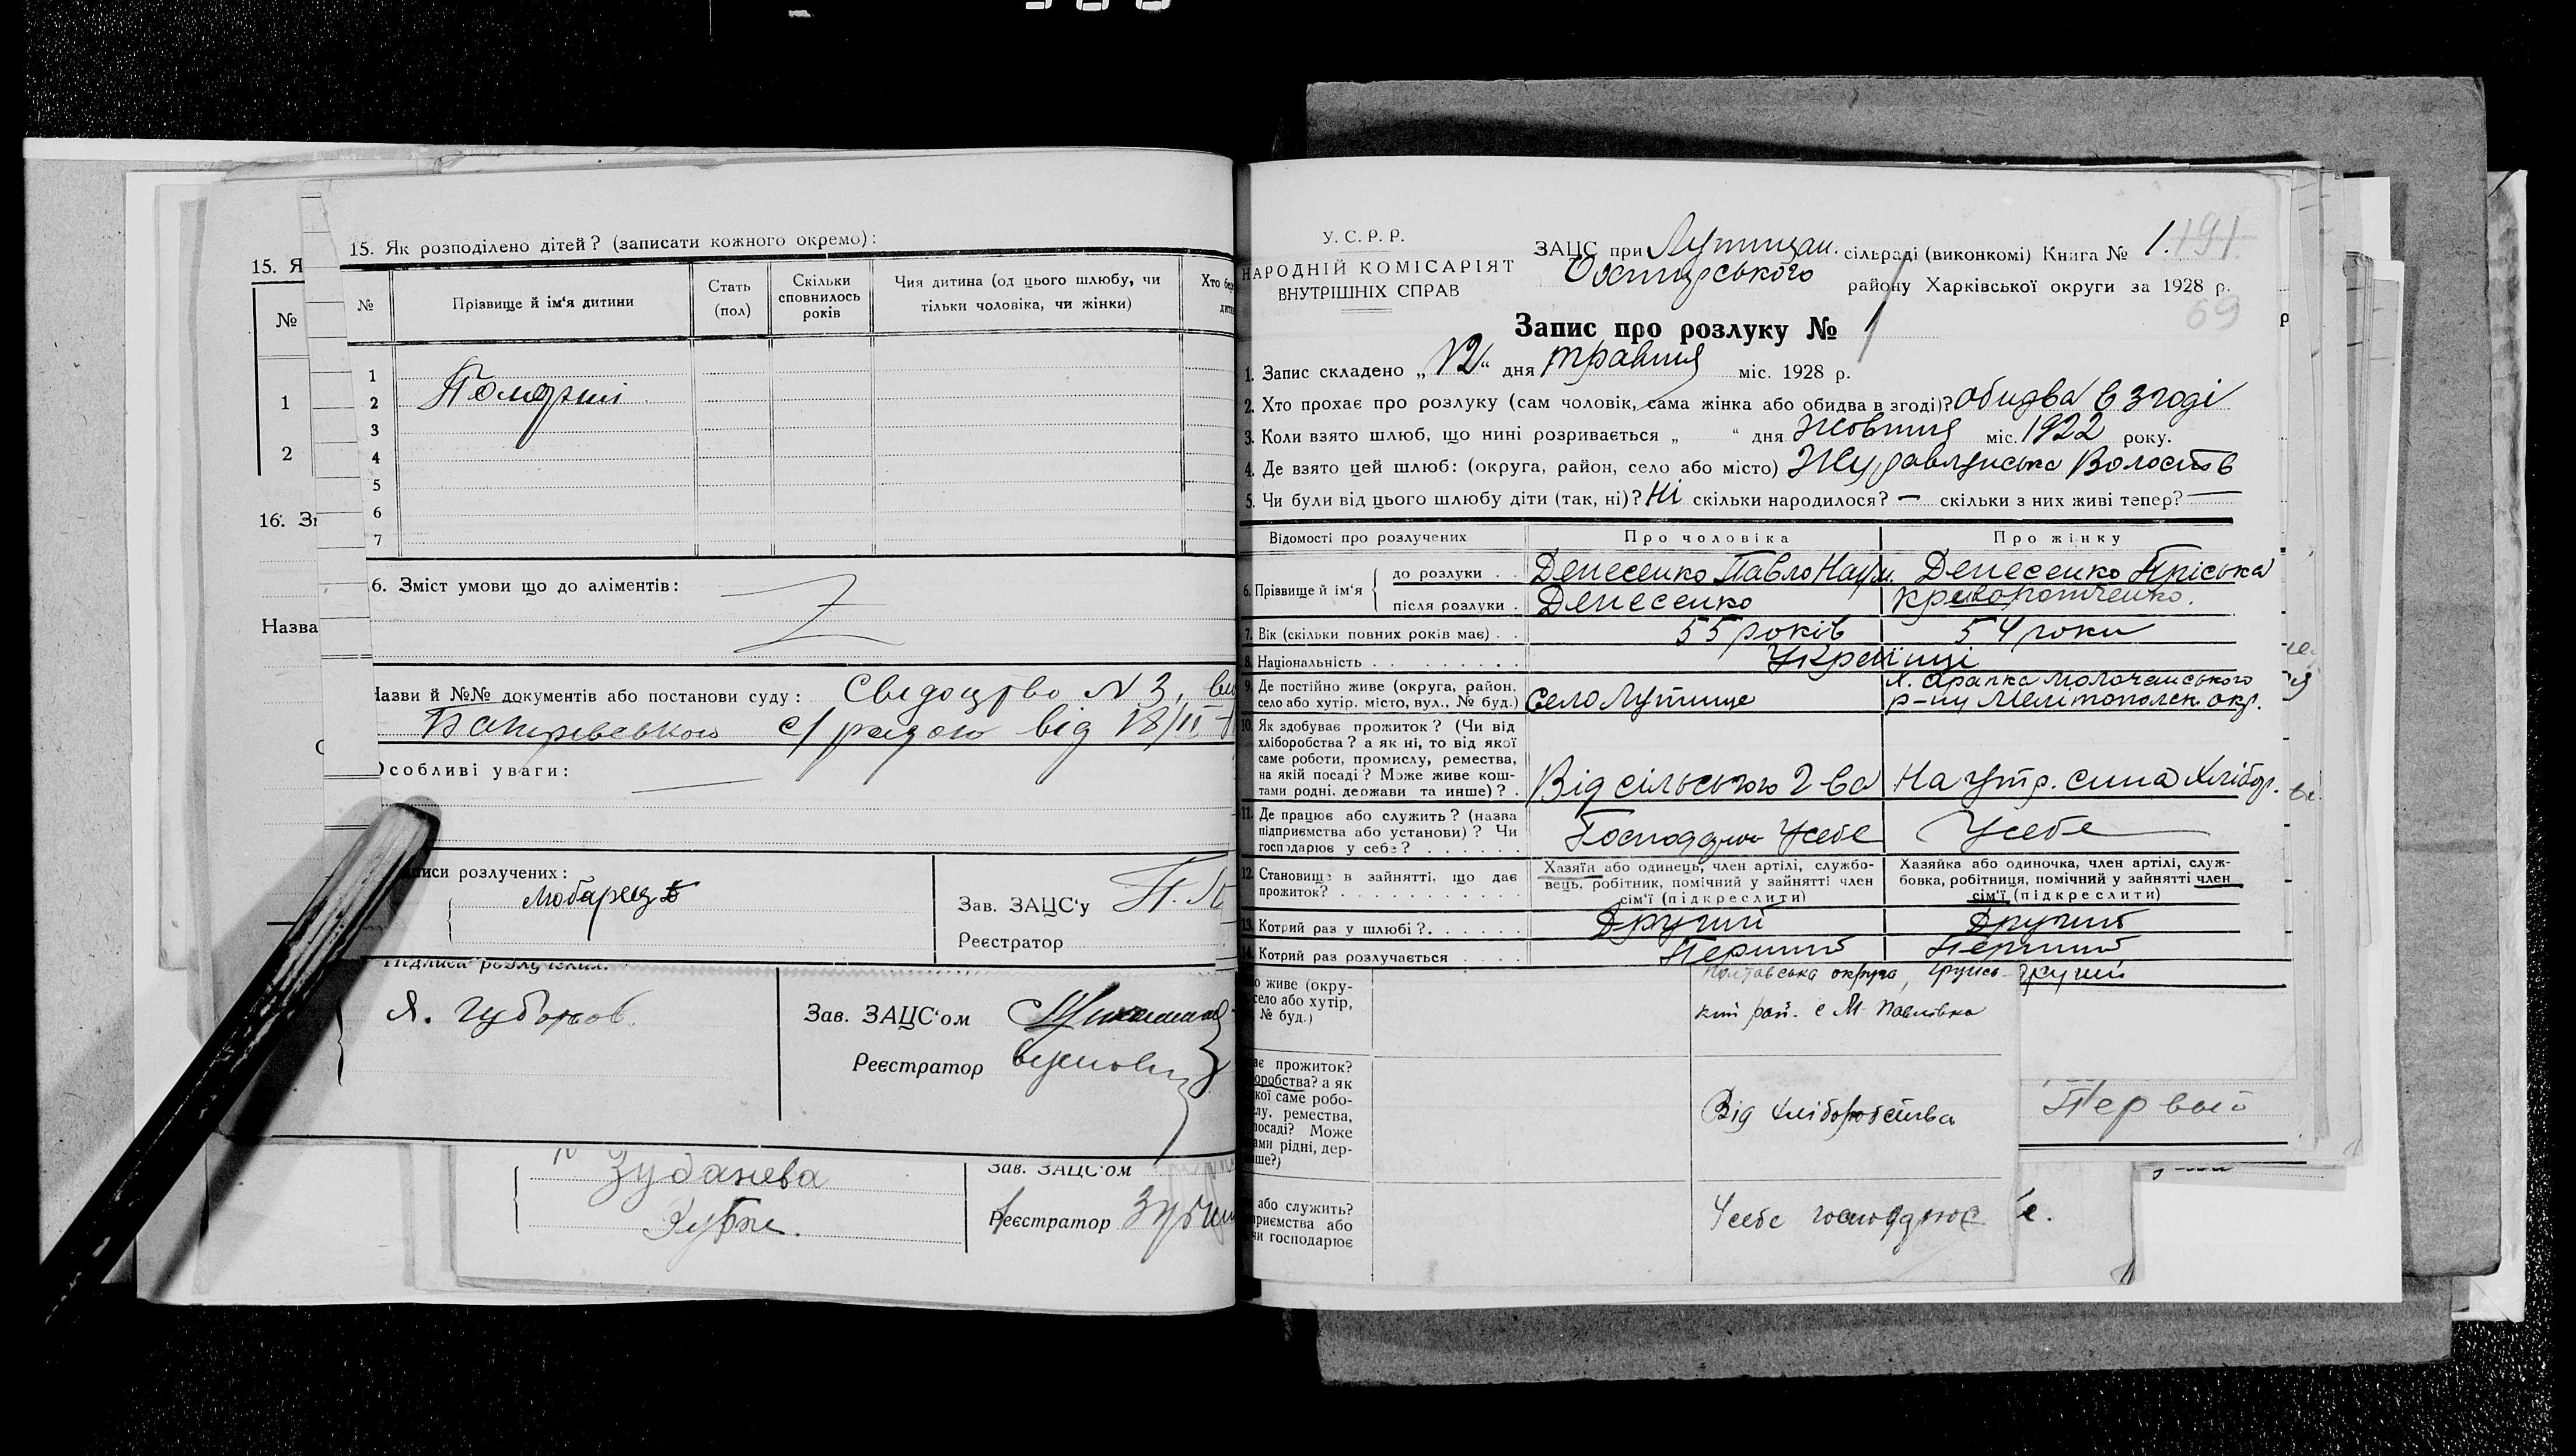 15. Я
№
1
2
16. Зг
Назва
15. Як розподілено дітей? (записати кожного окремо):
№ Прізвище й ім‘я дитини Стать (пол) Скільки сповнилось років Чия дитина (од цього шлюбу, чи тільки чоловіка, чи жінки) Хто
1
2 Померші
3
4
5
6
7
6. Зміст умови що до аліментів: Z
Назви й №№ документів або постанови суду: Свідоцтво N 3, ви
с/радою від 18/II
Особливі уваги: —
писи розлучених:
Любарец
Зав. ЗАЦС‘у П.
Реєстратор
Підписи розлучених:
Я. Губарьов.
Зав. ЗАЦС‘ом
Реєстратор
Зуданева
Зав. ЗАЦС‘ом
Реєстратор
У. С. Р. Р.
НАРОДНІЙ КОМІСАРІЯТ
ВНУТРІШНІХ СПРАВ
ЗАЦС при Лутищан. сільраді (виконкомі) Книга № 1. 191
Охтирського району Харківської округи за 1928 р.
69
Запис про розлуку № 1
1. Запис складено „12“ дня травня міс. 1928 р.
2. Хто прохає про розлуку (сам чоловік, сама жінка або обидва в згоді)? обидва в згоді
3. Коли взято шлюб, що нині розривається „ “ дня Жовтня міс. 1922 року.
4. Де взято цей шлюб: (округа, район, село або місто) Журавлинська Волость
5. Чи були від цього шлюбу діти (так, ні)? Ні скільки народилося? — скільки з них живі тепер? —
Відомості про розлучених Про чоловіка Про жінку
6. Прізвище й ім‘я до розлуки . . Денесенко Павло Наум. Денесенко Пріська
після розлуки . Денесенко Криворотченко.
7. Вік (скільки повних років має) . . 55 років 54 роки
8. Національність . . . . . . . . Українці
9. Де постійно живе (округа, район, село або хутір, місто, вул., № буд.) село Лутище х. Арапка Молочанського
р-ну Мелітопольск окр.
10. Як здобуває прожиток? (Чи від
хліборобства? а як ні, то від якої
саме роботи, промислу, ремества,
на якій посаді? Може живе кош-
тами родні, держави та инше)? . Від сільського г-ва На утр. сина хлібор.
11. Де працює або служить? (назва
підприємства або установи)? Чи
господарює у себе? . . . . . . Господарює Усебе Усебе
12. Становище в зайнятті, що дає
прожиток? . . . . . . . . . .
Хазяїн або одинець, член артілі, службо-
вець, робітник, помічний у зайнятті член
сім‘ї (підкреслити)
Хазяйка або одиночка, член артілі, служ-
бовка, робітниця, помічний у зайнятті член
сім‘ї (підкреслити)
13. Котрий раз у шлюбі? . . . . . . Другий Другий
14. Котрий раз розлучається . . . . Перший Перший
о живе (окру-
село або хутір,
№ буд.)
Полтавська округа, Грунсь-
кий рай. с М-Павлівка
Другий
ає прожиток?
оробства? а як
кої саме робо-
лу, ремества,
посаді? Може
ами рідні, дер-
ше?)
Від хліборобства
Первый
або служить?
приємства або
чи господарює
Усебе господарює
е.